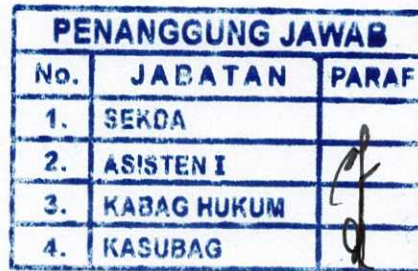 PENANGGUNG JAWAB
No. JABATAN PARAF
1. SEKDA
2. ASISTEN I
3. KABAG HUKUM
4. KASUBAG